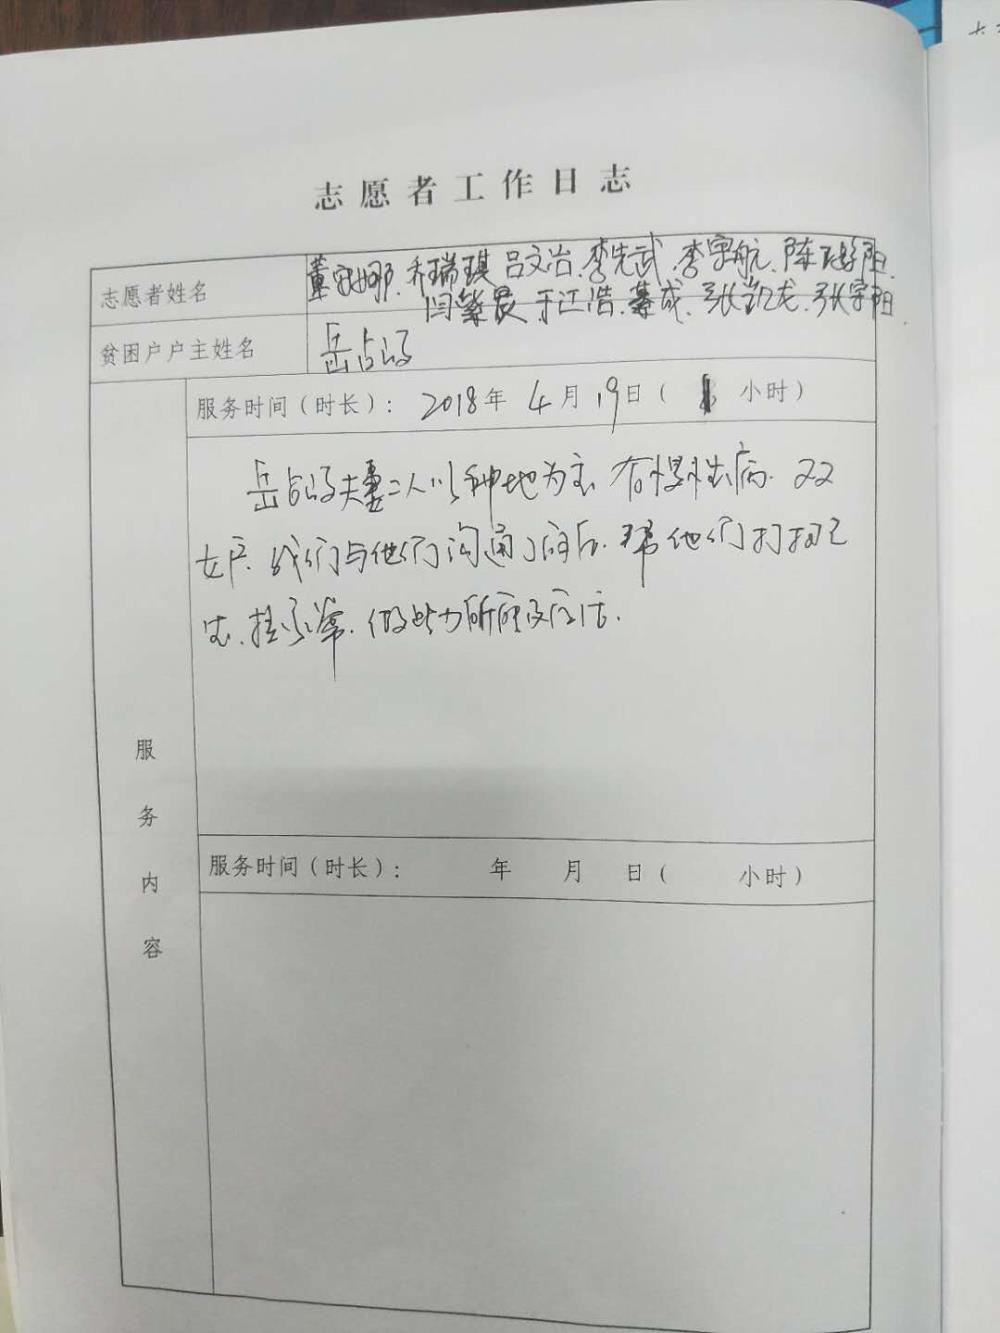 志愿者工作日志
志愿者姓名
董 娜、乔瑞琪、吕文治、李先武、李宇航、陈 阳、
闫 、于江浩、 成、张凯龙、张宇阳
贫困户户主姓名
岳占
服务时间(时长): 2018年 4月 19日( 小时)
岳占 夫妻二人以种地为主 有慢性病. 双
女户. 我们与他们沟通了 后. 帮他们打扫卫
生、挂 . 做些力所能及 活.
服
务
内
容
服务时间(时长): 年 月 日( 小时)